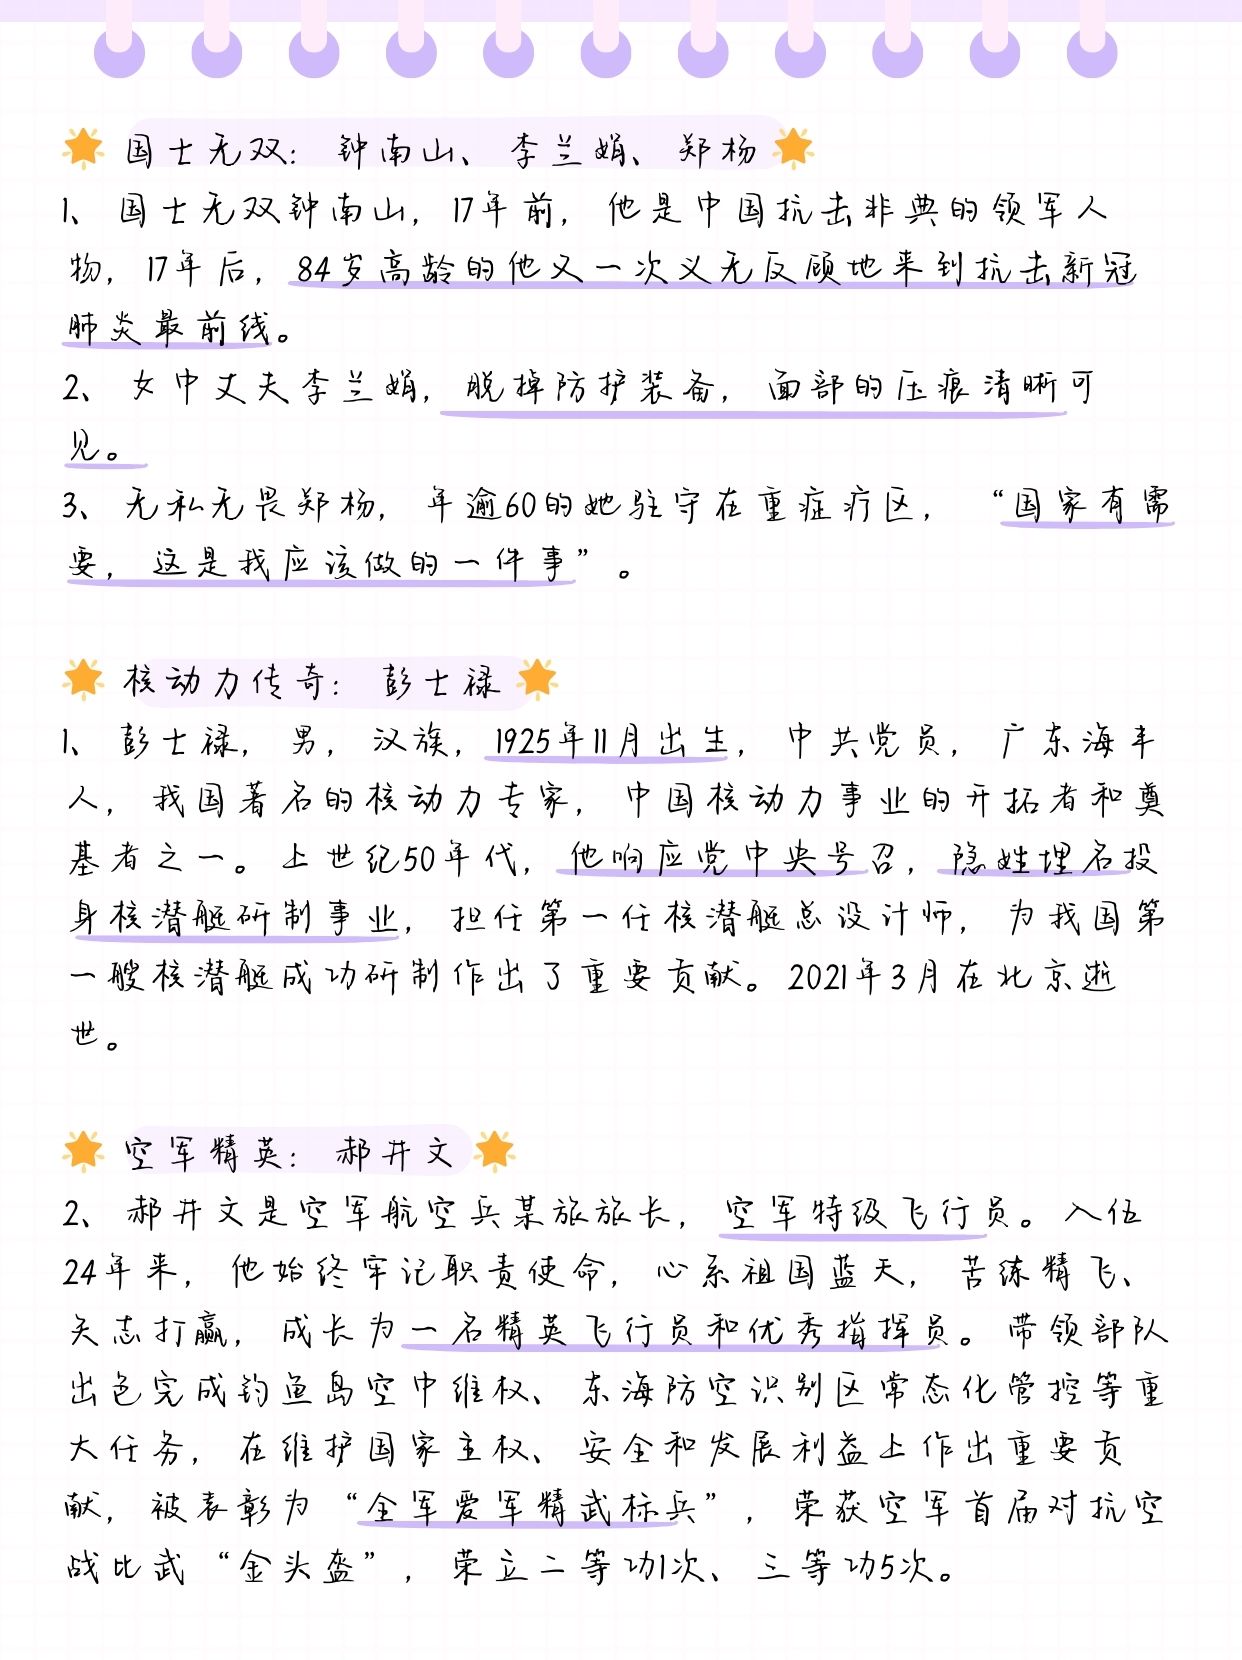 国士无双：钟南山、李兰娟、郑杨
1、国士无双钟南山，17年前，他是中国抗击非典的领军人
物，17年后，84岁高龄的他又一次义无反顾地来到抗击新冠
肺炎最前线。
2、女中丈夫李兰娟，脱掉防护装备，面部的压痕清晰可
见。
3、无私无畏郑杨，年逾60的她驻守在重症疗区，“国家有需
要，这是我应该做的一件事”。
核动力传奇：彭士禄
1、彭士禄，男，汉族，1925年11月出生，中共党员，广东海丰
人，我国著名的核动力专家，中国核动力事业的开拓者和奠
基者之一。上世纪50年代，他响应党中央号召，隐姓埋名投
身核潜艇研制事业，担任第一任核潜艇总设计师，为我国第
一艘核潜艇成功研制作出了重要贡献。2021年3月在北京逝
世。
空军精英：郝井文
2、郝井文是空军航空兵某旅旅长，空军特级飞行员。入伍
24年来，他始终牢记职责使命，心系祖国蓝天，苦练精飞、
矢志打赢，成长为一名精英飞行员和优秀指挥员。带领部队
出色完成钓鱼岛空中维权、东海防空识别区常态化管控等重
大任务，在维护国家主权、安全和发展利益上作出重要贡
献，被表彰为“全军爱军精武标兵”，荣获空军首届对抗空
战比武“金头盔”，荣立二等功1次、三等功5次。